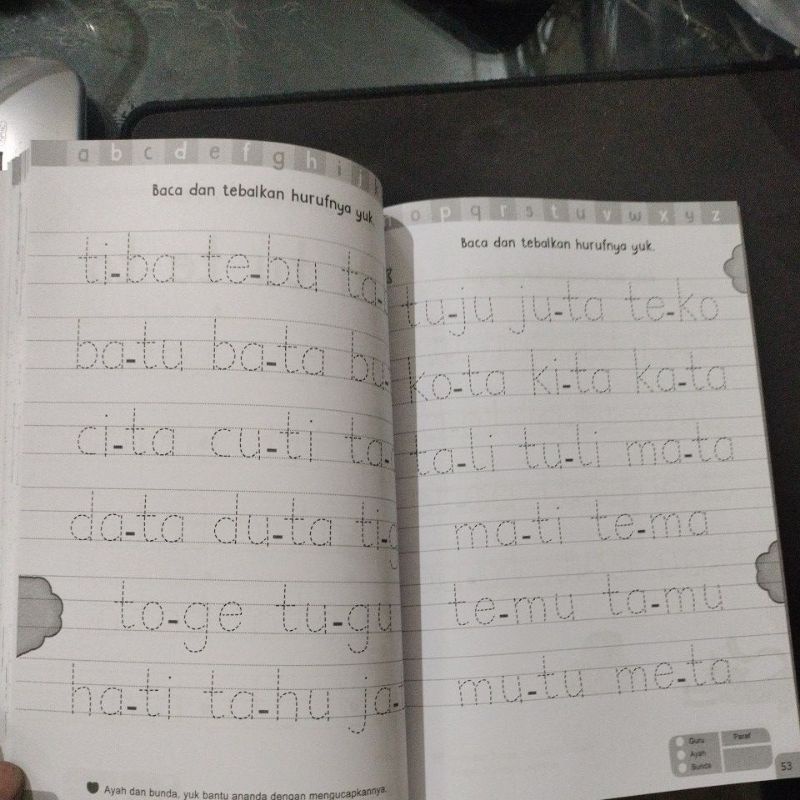 a b c d e f g h i j k
Baca dan tebalkan hurufnya yuk.
ti-ba te-bu ta-
ba-tu ba-ta bu-
ci-ta cu-ti ta-
da-ta du-ta ti-g
to-ge tu-gu
ha-ti ta-hu ja-
Ayah dan bunda, yuk bantu ananda dengan mengucapkannya.
o p q r s t u v w x y z
Baca dan tebalkan hurufnya yuk.
tu-ju ju-ta te-ko
ko-ta ki-ta ka-ta
ta-li tu-li ma-ta
ma-ti te-ma
te-mu ta-mu
mu-tu me-ta
Guru Paraf
Ayah
Bunda
53